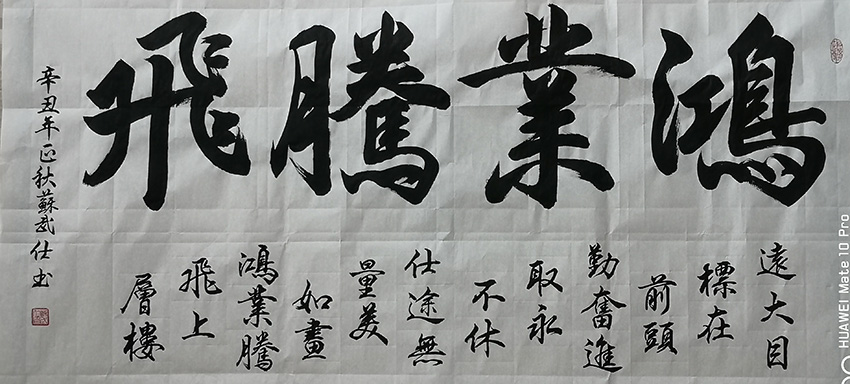 鴻業騰飛
遠大目
標在
前頭
勤奮進
取永
不休
仕途無
量美
如畫
鴻業騰
飛上
層樓
辛丑年正秋蘇武仕书
HUAWEI Mate 10 Pro